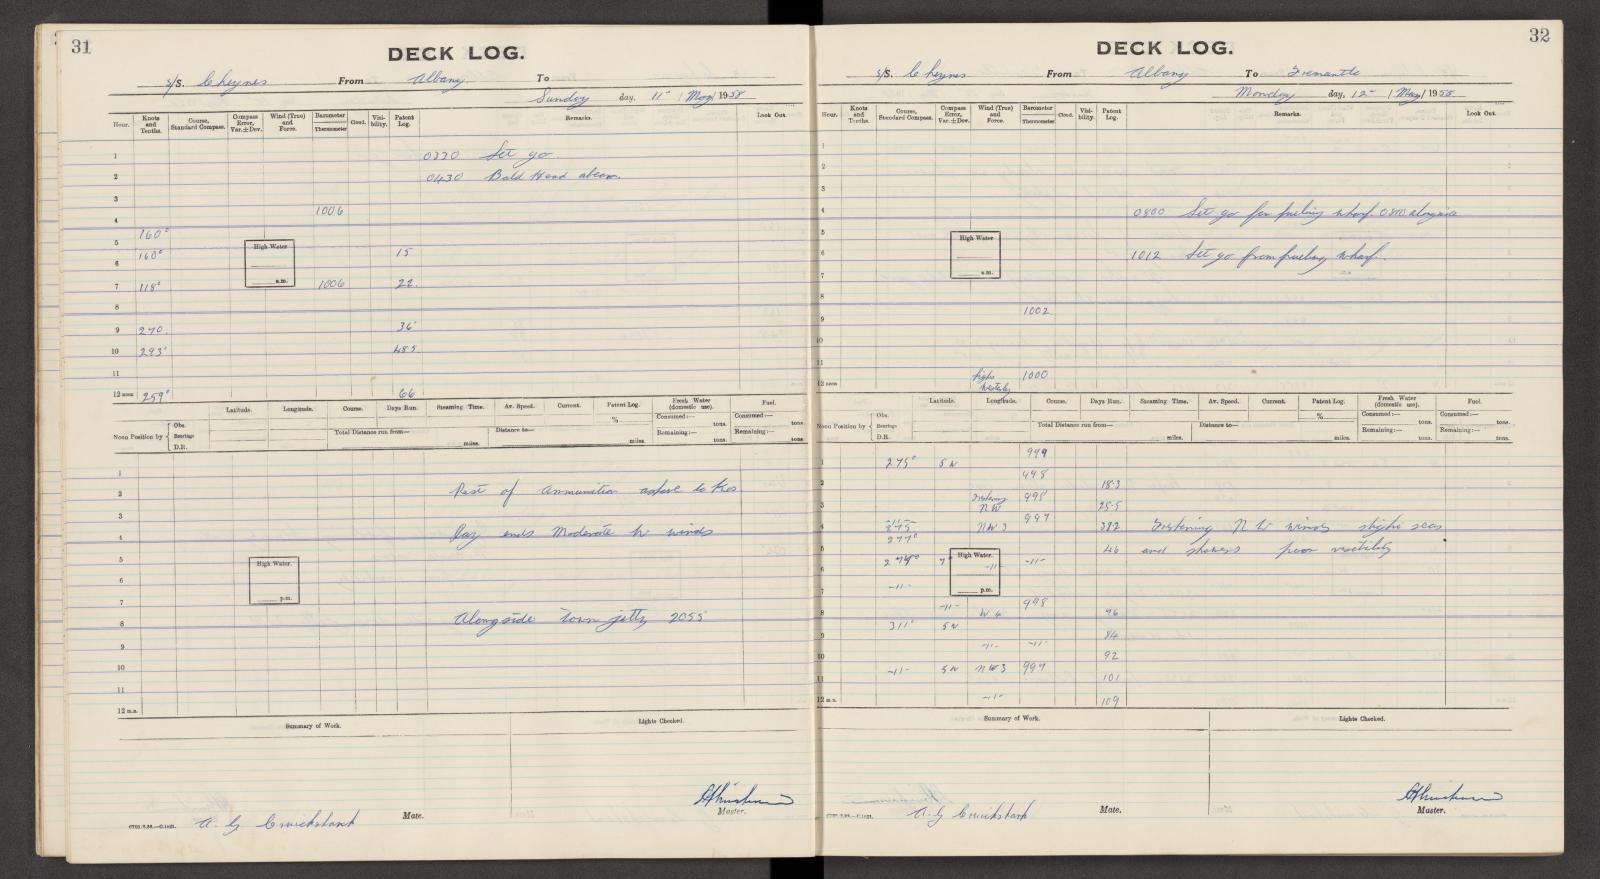 31
DECK LOG.
S/S. Cheynes From Albany To
Sunday day, 11 / May / 1958
Hour. Knots and Tenths. Course, Standard Compass. Compass Error, Var. ± Dev. Wind (True) and Force. Barometer Thermometer Cloud. Visi- bility. Patent Log. Remarks. Look Out.
1 0330 Set go.
2 0430 Bald Head abeam.
3
4 1006
160°
5 High Water
160° 15
6
7 118° a.m. 1006 22
8
9 270 36
10 293° 48.5
11
12 noon 259° 66
Latitude. Longitude. Course. Days Run. Steaming Time. Av. Speed. Current. Patent Log. Fresh Water (domestic use). Fuel.
Noon Position by Obs. Bearings D.R. % Consumed:— tons. Consumed:— tons.
Total Distance run from— miles. Distance to— miles. Remaining:— tons. Remaining:— tons.
1
2 Rest of ammunition to Kos
3
4 Day ends Moderate W winds
5 High Water.
6
7 p.m.
8 Alongside town jetty 2055
9
10
11
12 m.n.
Summary of Work. Lights Checked.
A. G Cruickshank Mate.
Master.
32
DECK LOG.
S/S. Cheynes From Albany To Fremantle
Monday day, 12 / May / 1958
Hour. Knots and Tenths. Course, Standard Compass. Compass Error, Var. ± Dev. Wind (True) and Force. Barometer Thermometer Cloud. Visi- bility. Patent Log. Remarks. Look Out.
1
2
3
4 0800 Set go for fueling wharf. 0810 alongside
5 High Water
6 1012 Set go from fueling wharf.
7 a.m.
8
9 1002
10
11
12 noon light westerly 1000
Latitude. Longitude. Course. Days Run. Steaming Time. Av. Speed. Current. Patent Log. Fresh Water (domestic use). Fuel.
Noon Position by Obs. Bearings D.R. % Consumed:— tons. Consumed:— tons.
Total Distance run from— miles. Distance to— miles. Remaining:— tons. Remaining:— tons.
999
1 275° 5W
998
2 18.3
3 freshening NW 998 25.5
4 -11- 275 NW 3 997 382 Freshening N W winds slight seas
277°
5 46 and showers poor visibility
High Water.
6 -11- -11-
-11- p.m.
7 998
8 -11- W 4 76
311° 5W
9 84
-11- -11-
10 92
-11- 5W NW3 997
11 101
12 m.n. -11- 109
Summary of Work. Lights Checked.
A. G Cruickshank Mate.
Master.